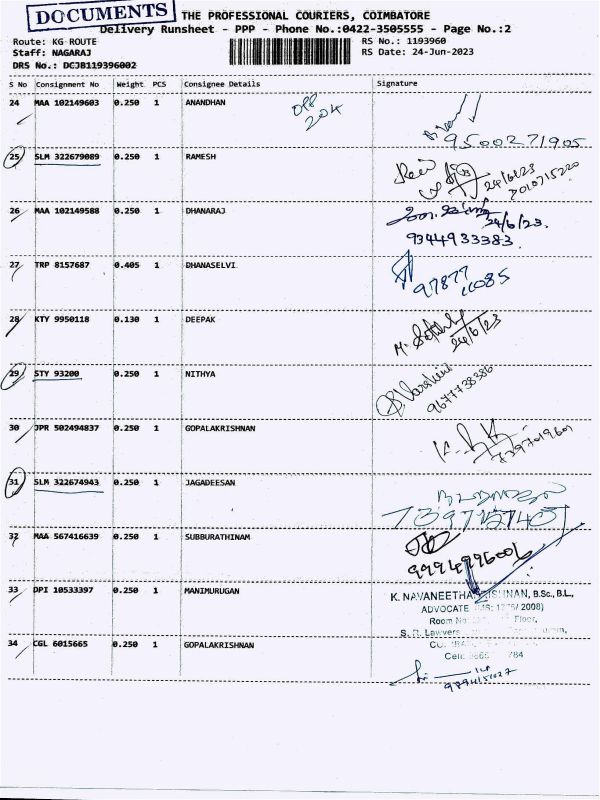 DOCUMENTS
THE PROFESSIONAL COURIERS, COIMBATORE
Delivery Runsheet - PPP - Phone No.:0422-3505555 - Page No.:2
Route: KG ROUTE
RS No.: 1193960
Staff: NAGARAJ
RS Date: 24-Jun-2023
DRS No.: DCJB119396002
S No Consignment No Weight PCS Consignee Details Signature
24 MAA 102149603 0.250 1 ANANDHAN
204
9500271905
25 SLM 322679089 0.250 1 RAMESH
24/6/23
26 MAA 102149588 0.250 1 DHANARAJ
24/6/23.
9344933383.
27 TRP 8157687 0.405 1 DHANASELVI
97877
11085
28 KTY 9950118 0.130 1 DEEPAK
24/6/23
29 STY 93200 0.250 1 NITHYA
9677738386
30 JPR 502494837 0.250 1 GOPALAKRISHNAN
31 SLM 322674943 0.250 1 JAGADEESAN
32 MAA 567416639 0.250 1 SUBBURATHINAM
9994996006
33 DPI 10533397 0.250 1 MANIMURUGAN
K. NAVANEETHAKRISHNAN, B.Sc., B.L.,
ADVOCATE 2008)
Room No Floor,
Lawyers
Cell: 784
34 CGL 6015665 0.250 1 GOPALAKRISHNAN